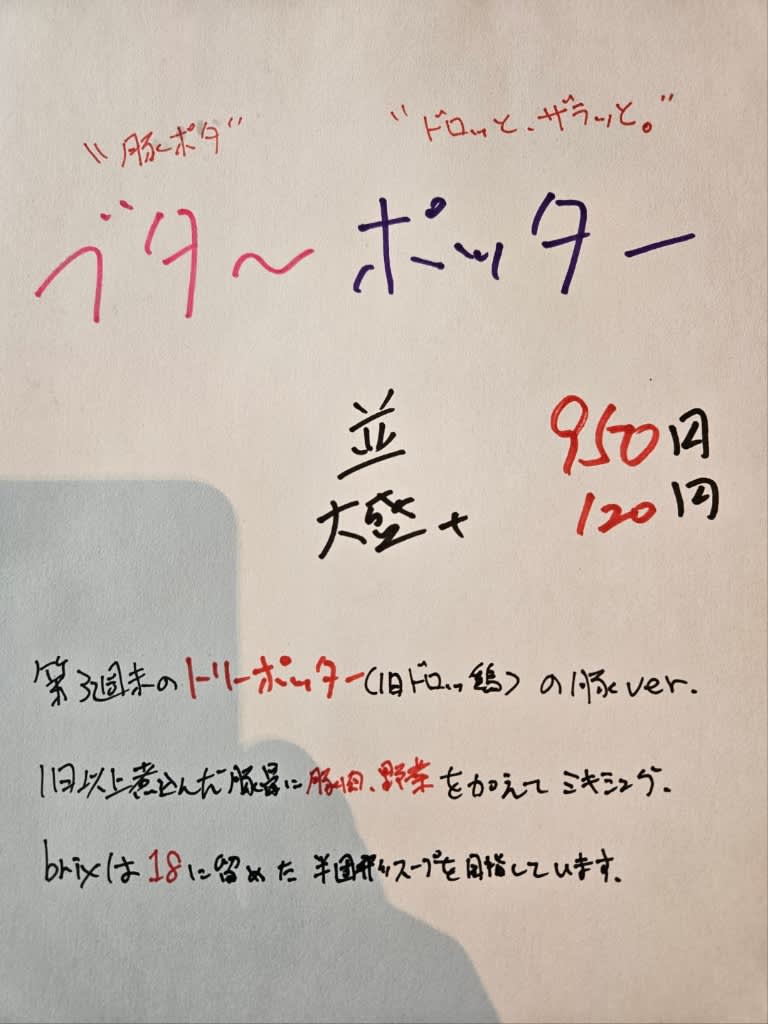 "豚ポタ" "ドロッと、ザラッと。"
ブタ〜ポッター
並 950円
大盛+ 120円
第3週末のトリーポッター(旧ドロッ鶏)の豚ver.
1日以上煮込んだ豚骨に豚肉、野菜を加えてミキシング。
brixは18に留めた半固形スープを目指しています。